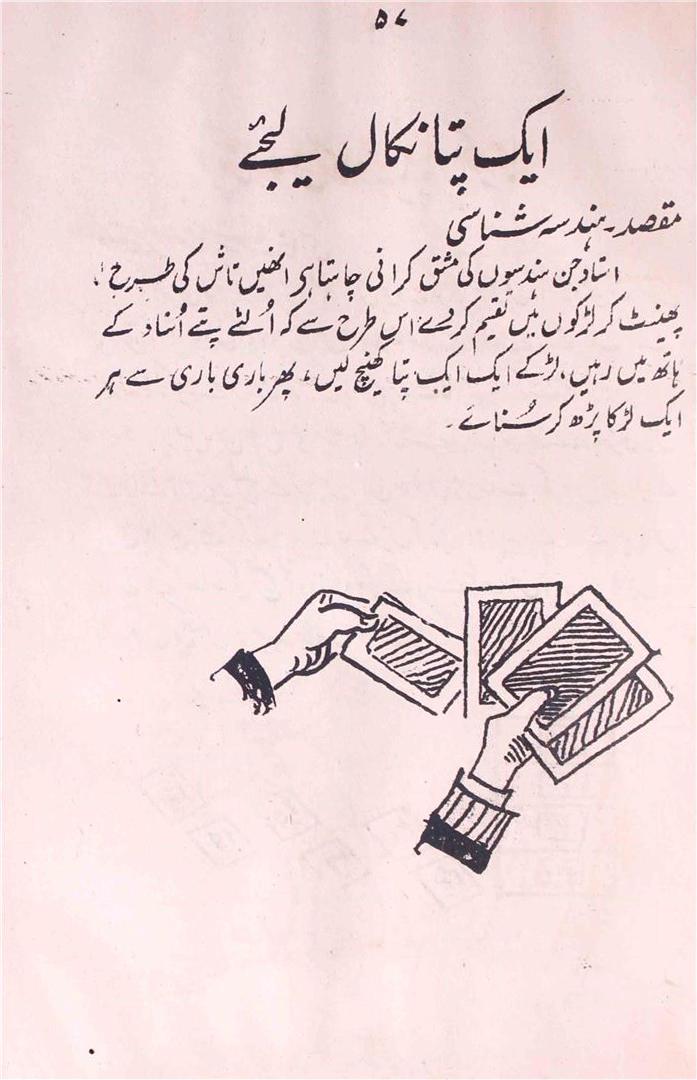 ۵۷
ایک پتا نکال لیجئے
مقصد۔ ہندسہ شناسی
استاد جن ہندسوں کی مشق کرانی چاہتا ہو انھیں تاش کی طرح
پھینٹ کر لڑکوں میں تقیم کر دے اس طرح سے کہ اُلٹے پتے اُستاد کے
ہاتھ میں رہیں، لڑکے ایک ایک پتا کھینچ لیں، پھر باری باری سے ہر
ایک لڑکا پڑھ کر سُنائے۔